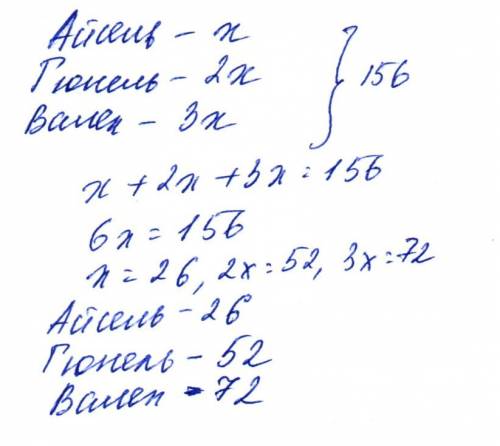 Айсель - x
Гюнель - 2x
Вален - 3x
} 156
x + 2x + 3x = 156
6x = 156
x = 26, 2x = 52, 3x = 72
Айсель - 26
Гюнель - 52
Вален - 72